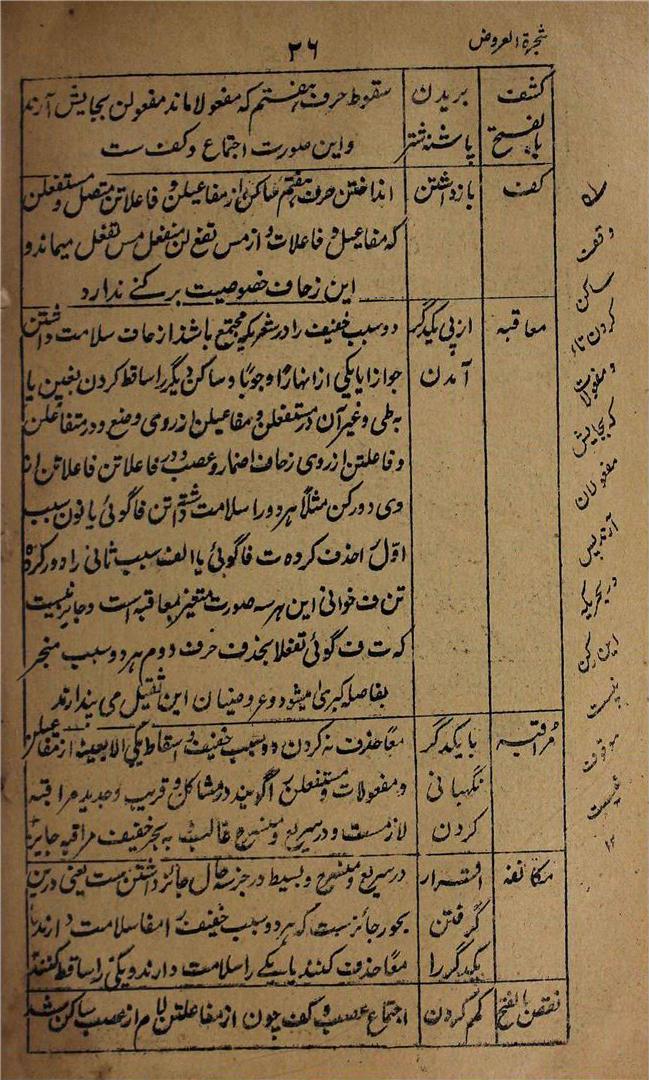 شجرة العروض
۲۶
کشف بالفتح
بریدن پاشنه شتر
سقوط حرف هفتم که مفعولا ماند مفعولن بجایش آرند
و این صورت اجتماع وکف ست
کف
بازداشتن
انداختن حرف هفتم ساکن از مفاعیلن و فاعلاتن متصل و مستفعلن
که مفاعیل و فاعلات و از مس تفع لن منفصل مس تفعل میماند و
این زحاف خصوصیت برکنے ندارد
معاقبه
از پی یکدیگر آمدن
دو سبب خفیف را در شعر یکه مجتمع باشد از حاف سلامت داشتن
جوازا یا یکی از انها را وجوبا و ساکن دیگر را ساقط کردن بخبن یا
به طی و غیر آن در مستفعلن و مفاعیلن از روی وضع و در متفاعلن
و فاعلتن از روی زحاف اضمار و عصب و در فاعلاتن فاعلاتن از
وی دو رکن مثلا هر دو را سلامت داشته تن فا گوئی یا نون سبب
اول را حذف کرده ت فا گوئی یا الف سبب ثانی را دور کرده
تن ف خوانی این هر سه صورت متغیر معاقبه است و جایز نیست
که ت ف گوئی تفعلا بحذف حرف دوم هر دو سبب منجر
بفاصله کبری میشود و عروضیان این ثقیل می پندارند
مراقبه
با یکدگر نگهبانی کردن
معا حذف نه کردن دو سبب خفیف و اسقاط یکی لابعینه از مفاعیلن
و مفعولات و مستفعلن را گویند در مشاکل و قریب و جدید مراقبه
لازمست و در سریع و منسرح غالب به بحر خفیف مراقبه جایز
مکانفه
گرفتن یکدگر را
در سریع و منسرح و بسیط در جز سه حال جائز داشتن ست یعنی درین
بحور جائزست که هر دو سبب خفیف را معا سلامت دارند یا
معا حذف کنند یا یکے را سلامت دارند و یکی را ساقط کنند
نقص بالفتح
کم کردن
اجتماع عصب و کف چون از مفاعلتن لام از عصب ساکن شد
وقف
ساکن
کردن تاء
مفعولات
که بجایش
مفعولان
آرند پس
در بحریکه
این رکن
نیست
موقوف
نیست
۱۲